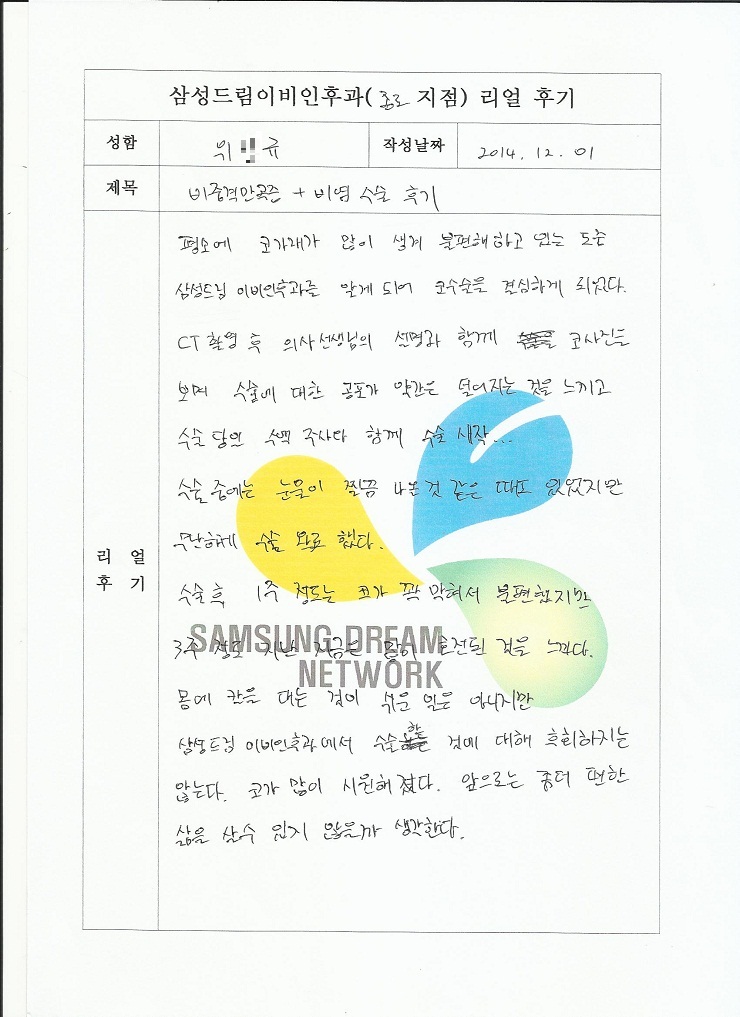 삼성드림이비인후과(종로 지점) 리얼 후기
성함 위 규 작성날짜 2014. 12. 01
제목 비중격만곡증 + 비염 수술 후기
평소에 코가래가 많이 생겨 불편해하고 있는 도중
삼성드림 이비인후과를 알게 되어 코수술을 결심하게 되었다.
CT 촬영 후 의사선생님의 설명과 함께 코사진을
보며 수술에 대한 공포가 약간은 덜어지는 것을 느끼고
수술 당일 수액 주사와 함께 수술 시작...
수술 중에는 눈물이 찔끔 나온 것 같은 때도 있었지만
무난하게 수술 완료 했다.
리 얼
후 기
수술 후 1주 정도는 코가 꽉 막혀서 불편했지만
3주 정도 지난 지금은 많이 호전된 것을 느낀다.
SAMSUNG DREAM
NETWORK
몸에 칼을 대는 것이 쉬운 일은 아니지만
삼성드림 이비인후과에서 수술한 것에 대해 후회하지는
않는다. 코가 많이 시원해졌다. 앞으로는 좀더 편한
삶을 살수 있지 않을까 생각한다.